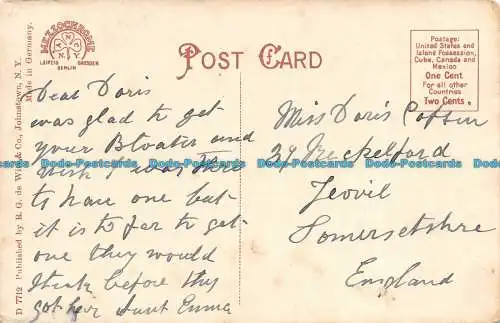 MEZZOCHROME
A N C
N.Y.
LEIPZIG DRESDEN
BERLIN
POST CARD
Postage:
United States and
Island Possession,
Cuba, Canada and
Mexico
One Cent
For all other
Countries
Two Cents.
D 7712 Published by R. G. de Witt & Co., Johnstown, N.Y. Made in Germany.
Dear Doris
was glad to get
your Bloater and
wish I was there
to have one but
it is to far to get
one they would
stink before they
got her Aunt Emma
Miss Doris
39
Yeovil
Somersetshire
England
Dodo-Postcards Dodo-Postcards Dodo-Postcards Dodo-Postcards
Dodo-Postcards Dodo-Postcards Dodo-Postcards Dodo-Postcards